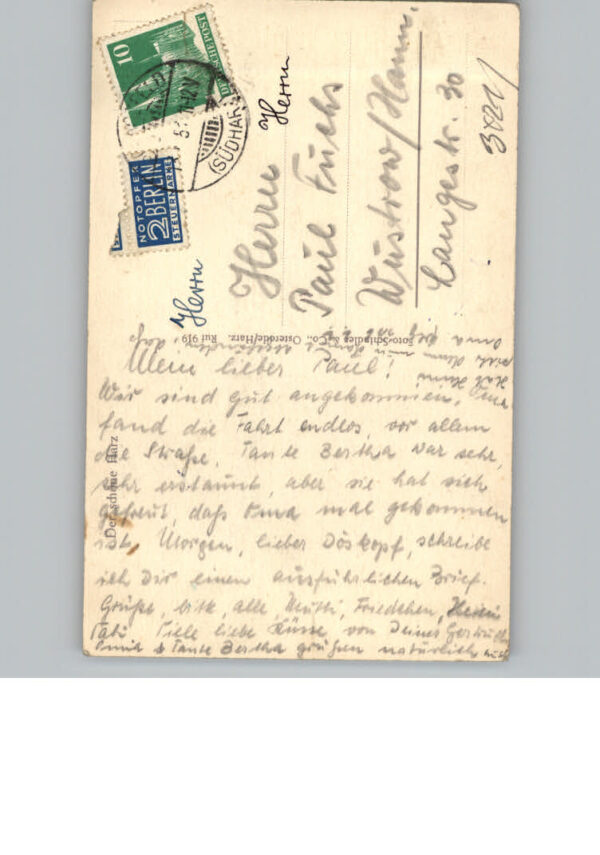 10
DEUTSCHE POST
(SÜDHARZ)
NOTOPFER
2 BERLIN
STEUERMARKE
Herrn
Herrn
Herrn
Paul Fuchs
Wustrow/Hann.
Langestr. 30
Foto-Schladies & Co., Osterode/Harz. Ruf 919
Der schöne Harz
Mein lieber Paul!
Wir sind gut angekommen, Oma
fand die Fahrt endlos, vor allem
die Straße, Tante Bertha war sehr,
sehr erstaunt, aber sie hat sich
gefreut, daß Oma mal gekommen
ist. Morgen, lieber Döskopf, schreibe
ich Dir einen ausführlichen Brief.
Grüße, bitte, alle, Mutti, Friedchen,
Vati Viele liebe Küsse von Deiner
Oma & Tante Bertha grüßen natürlich auch